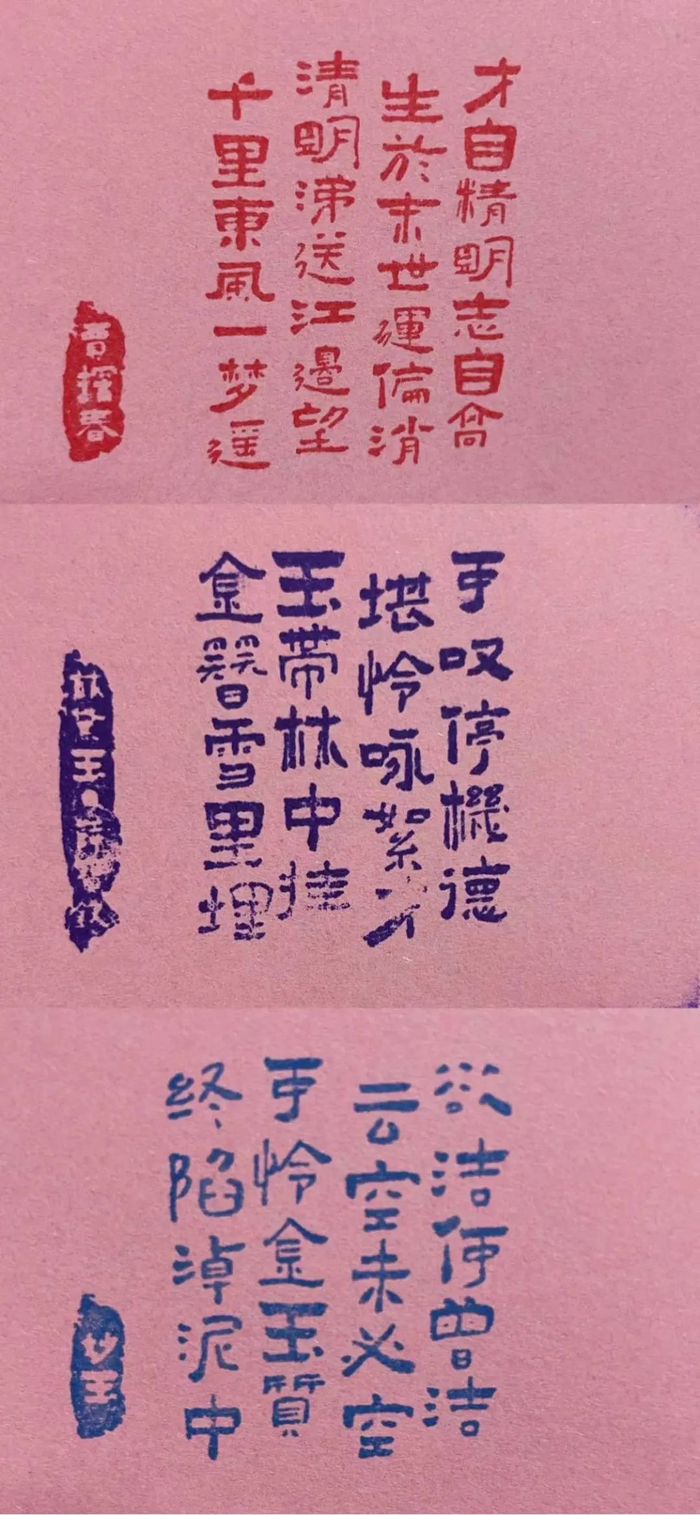 才自精明志自高
生於末世運偏消
清明涕送江邊望
千里東風一梦遥
賈探春
可叹停機德
堪怜咏絮才
玉帶林中挂
金簪雪里埋
林黛玉
欲洁何曾洁
云空未必空
可怜金玉質
终陷淖泥中
妙玉